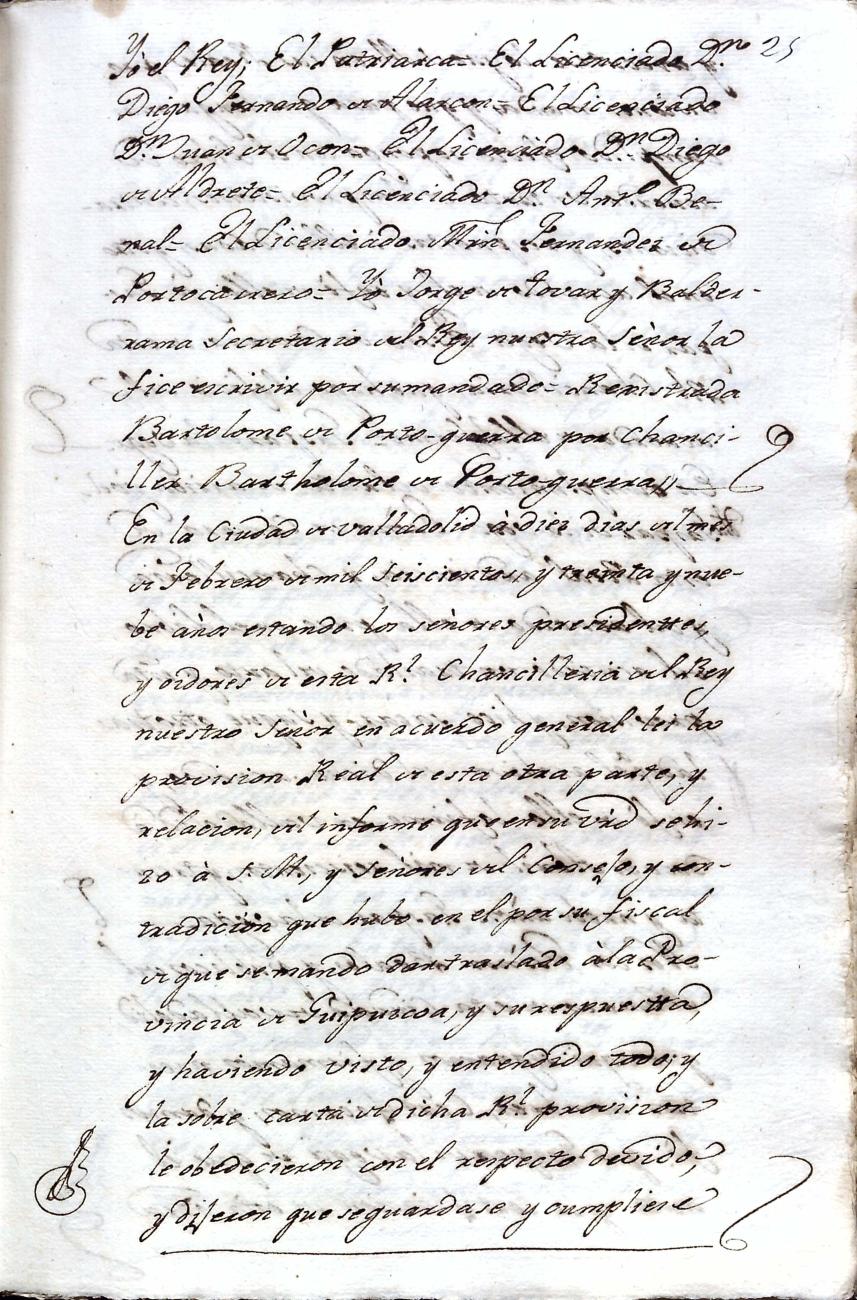 25
Yò el Rey; El Patriarca= El Licenciado D.n
Diego Fernando de Alarcon= El Licenciado
D.n Juan de Ocon= El Licenciado D.n Diego
de Aldrete= El Licenciado D.n Ant.o Be-
nal= El Licenciado Mrn. Fernandez de
Portocarrero= Yò Jorge de tovar y Balder-
rama Secretario del Rey nuestro Señor la
fice escrivir por su mandado= Rexistrada
Bartolome de Porto-guerra por Chanci-
ller Bartholome de Porto-guerra,,
En la Ciudad de valladolid à diez dias del mes
de Febrero de mil seiscientos, y treinta y nue-
be años estando los señores presidenttes,
y oidores de esta R.l Chancilleria del Rey
nuestro Señor en acuerdo general lei la
provision Real de esta otra parte, y
relacion, del informe que en su vrd se hi-
zo à S. M., y Señores del Consejo, y con-
tradición que hubo en el por su fiscal
de que se mando dar traslado à la Pro-
vincia de Guipuzcoa, y su respuestta,
y haviendo visto, y entendido todo, y
la sobre carta de dicha R.l provision
le obedecieron con el respecto devido,
y dijeron que se guardase y cumpliese